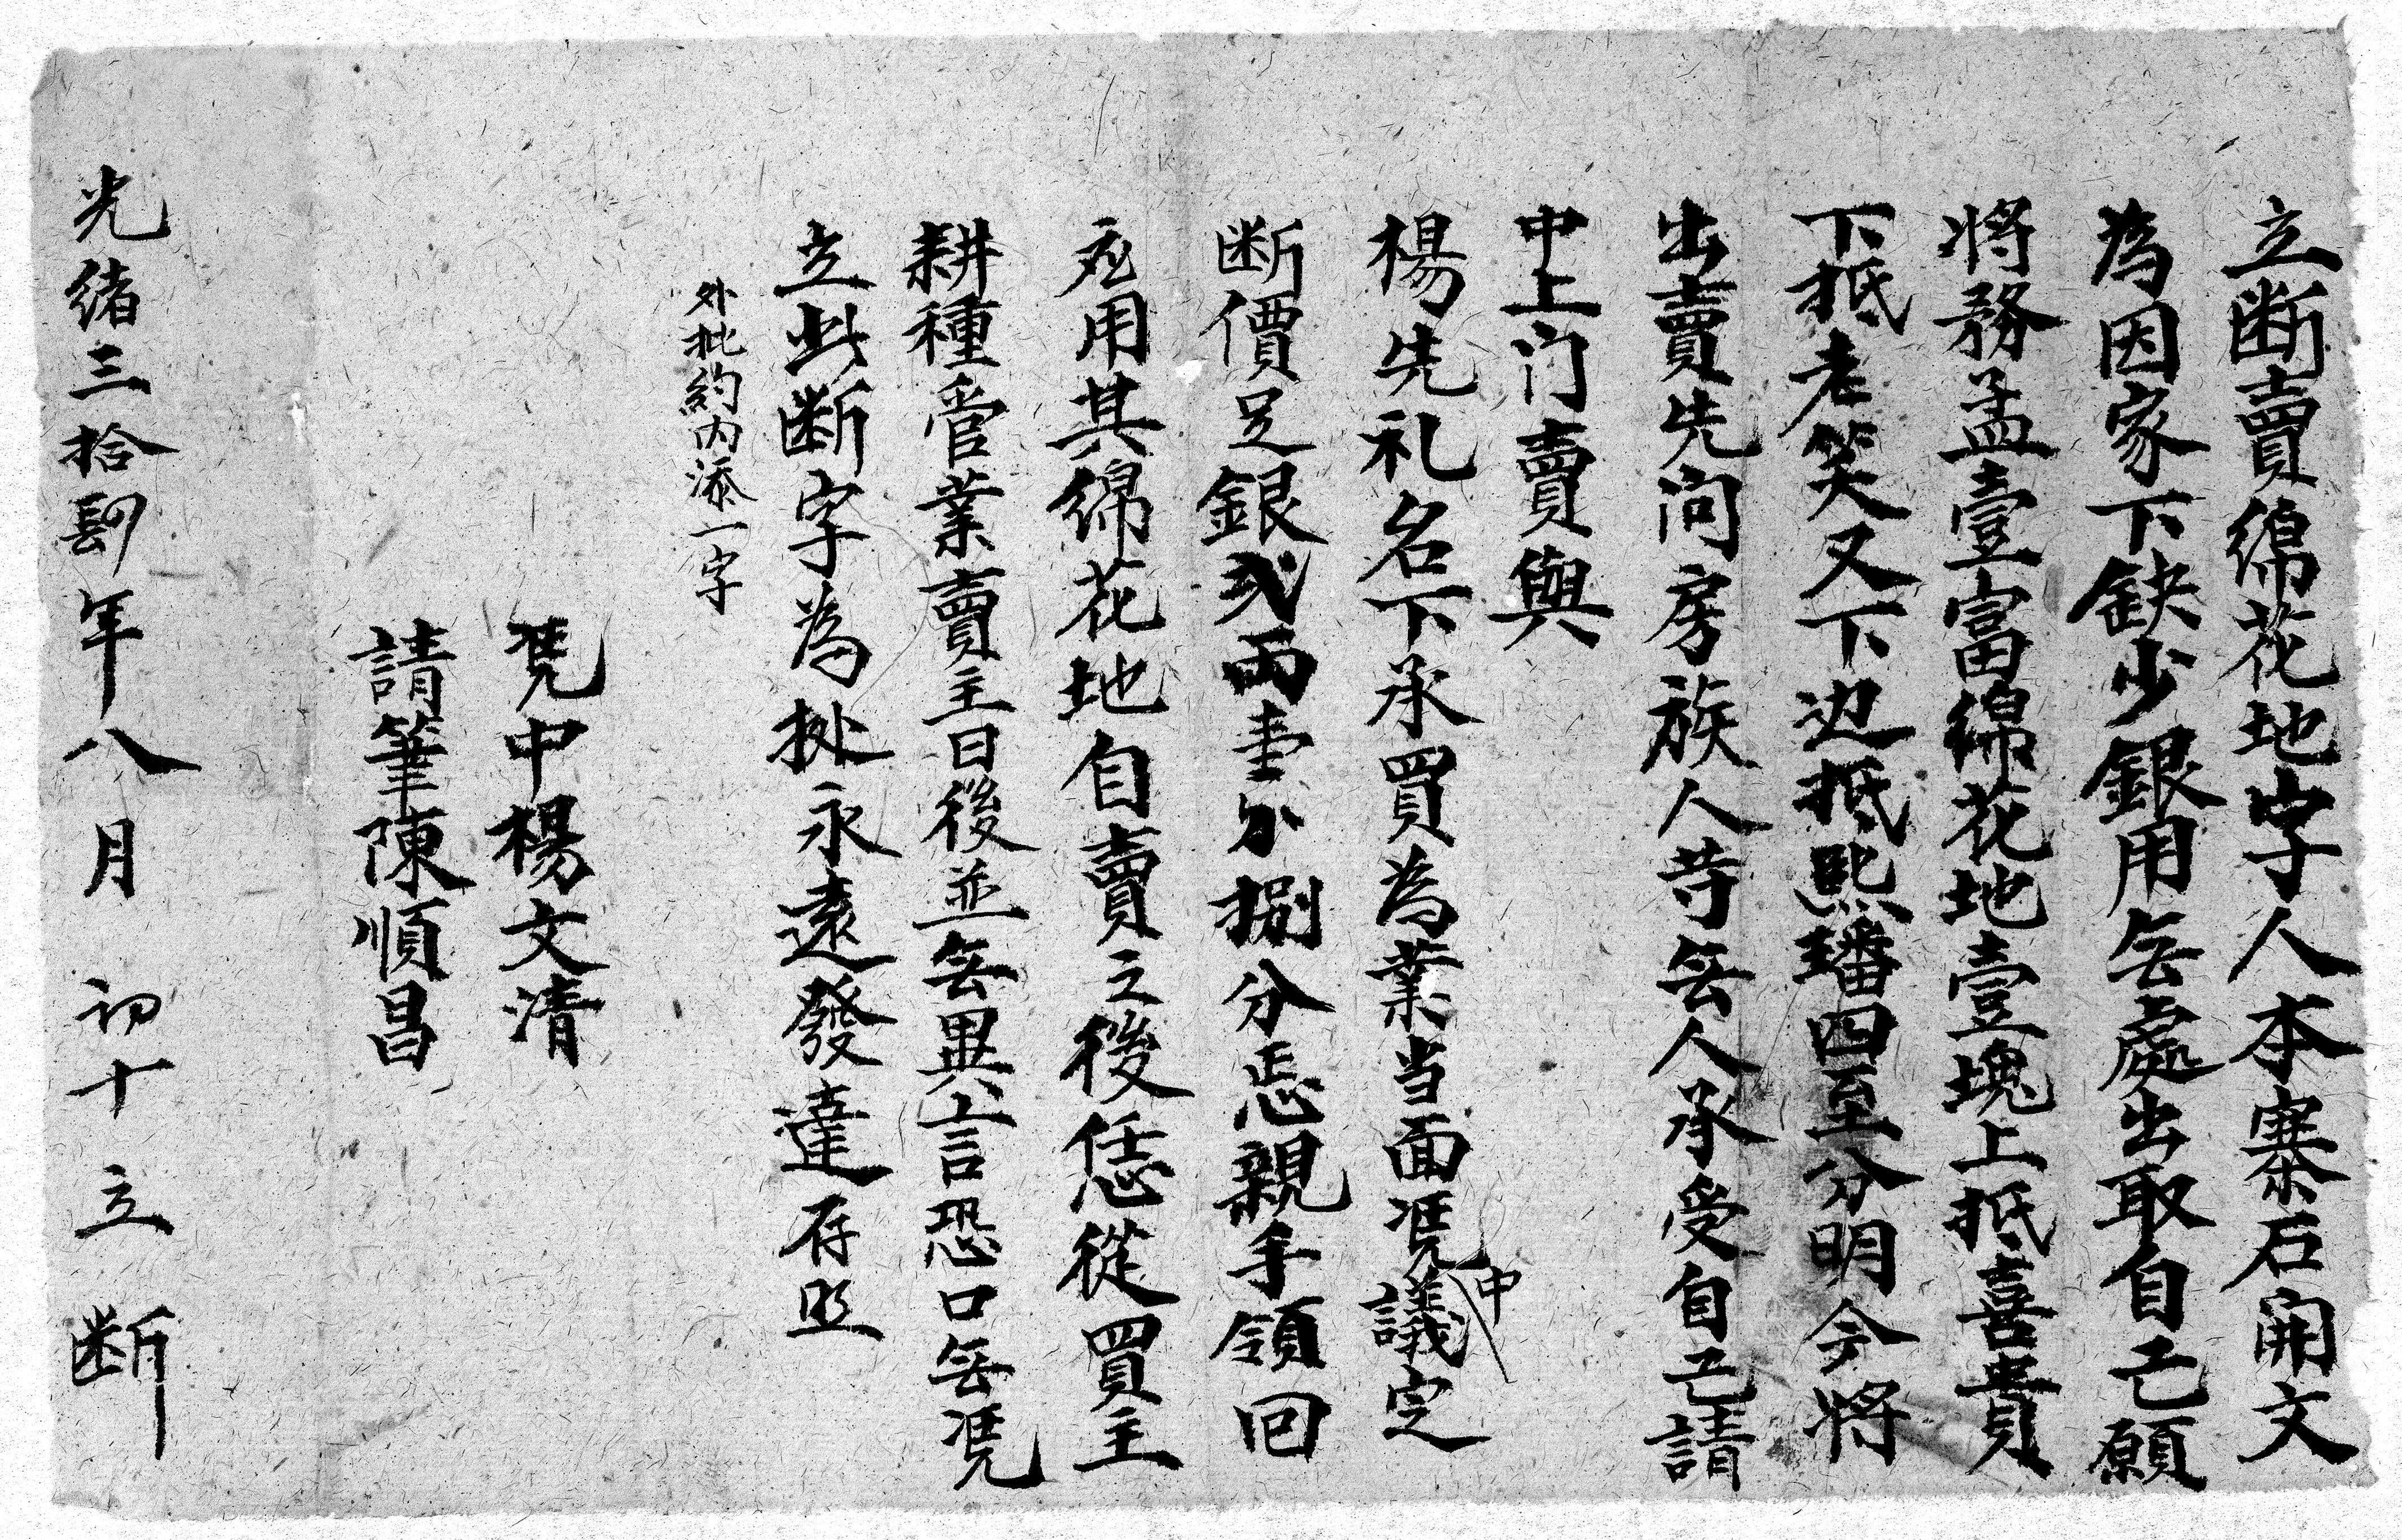 立断賣綿花地字人本寨石開文
為因家下缺少銀用無處出取自己願
將務孟壹富綿花地壹塊上抵喜貴
下抵老笑又下边抵熙璠四至分明今將
出賣先问房族人等無人承受自己請
中上门賣與
楊先礼名下承買為業当面凴中議定
断價足銀弐両壹分捌分忢親手領回
応用其綿花地自賣之後恁從買主
耕種管業賣主日後並無異言恐口無凴
立此断字為㨿永遠發達存照
外批約内添一字
凴中楊文清
請筆陳順昌
光緒三拾肆年八月初十立断